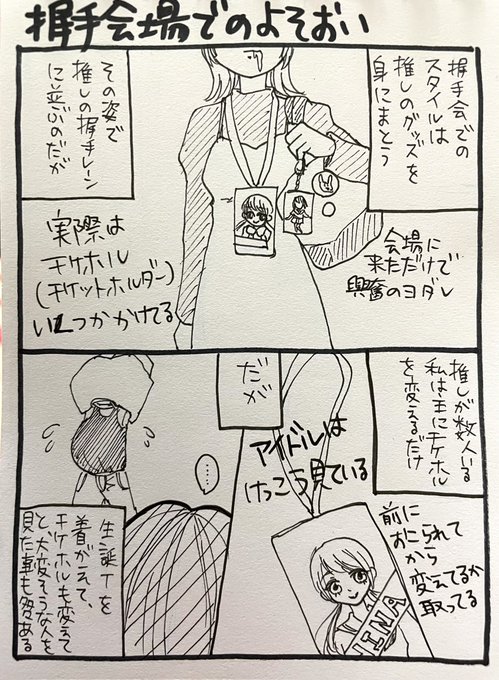 握手会場でのよそおい
握手会での
スタイルは
推しのグッズを
身にまとう
会場に
来ただけで
興奮のヨダレ
その姿で
推しの握手レーン
に並ぶのだが
実際は
チケホル
(チケットホルダー)
いくつかかけてる
推しが数人いる
私は主にチケホル
を変えるだけ
だが
アイドルは
けっこう見ている
前に
おこられて
から
変えてるか
取ってる
……
生誕Tを
着がえて、
チケホルも変えて
と、大変そうな人を
見た事も多々ある